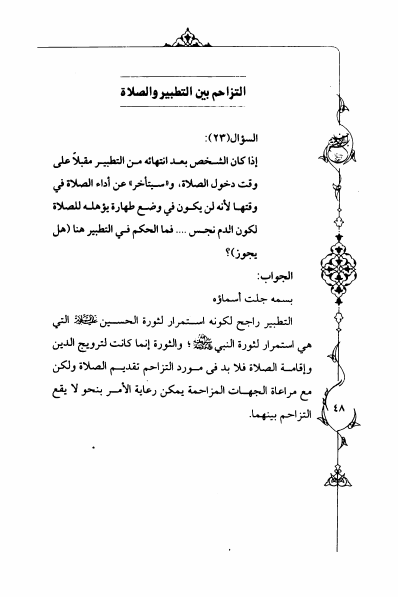 التزاحم بين التطبير والصلاة
السؤال(٢٣):
إذا كان الشخص بعد انتهائه من التطبير مقبلاً على
وقت دخول الصلاة، و«سيتأخر» عن أداء الصلاة في
وقتها لأنه لن يكون في وضع طهارة يؤهله للصلاة
لكون الدم نجس .... فما الحكم في التطبير هنا (هل
يجوز)؟
الجواب:
بسمه جلت أسماؤه
التطبير راجح لكونه استمرار لثورة الحسين التي
هي استمرار لثورة النبي ؛ والثورة إنما كانت لترويج الدين
وإقامة الصلاة فلا بد فى مورد التزاحم تقديم الصلاة ولكن
مع مراعاة الجهات المزاحمة يمكن رعاية الأمر بنحو لا يقع
التزاحم بينهما.
٤٨